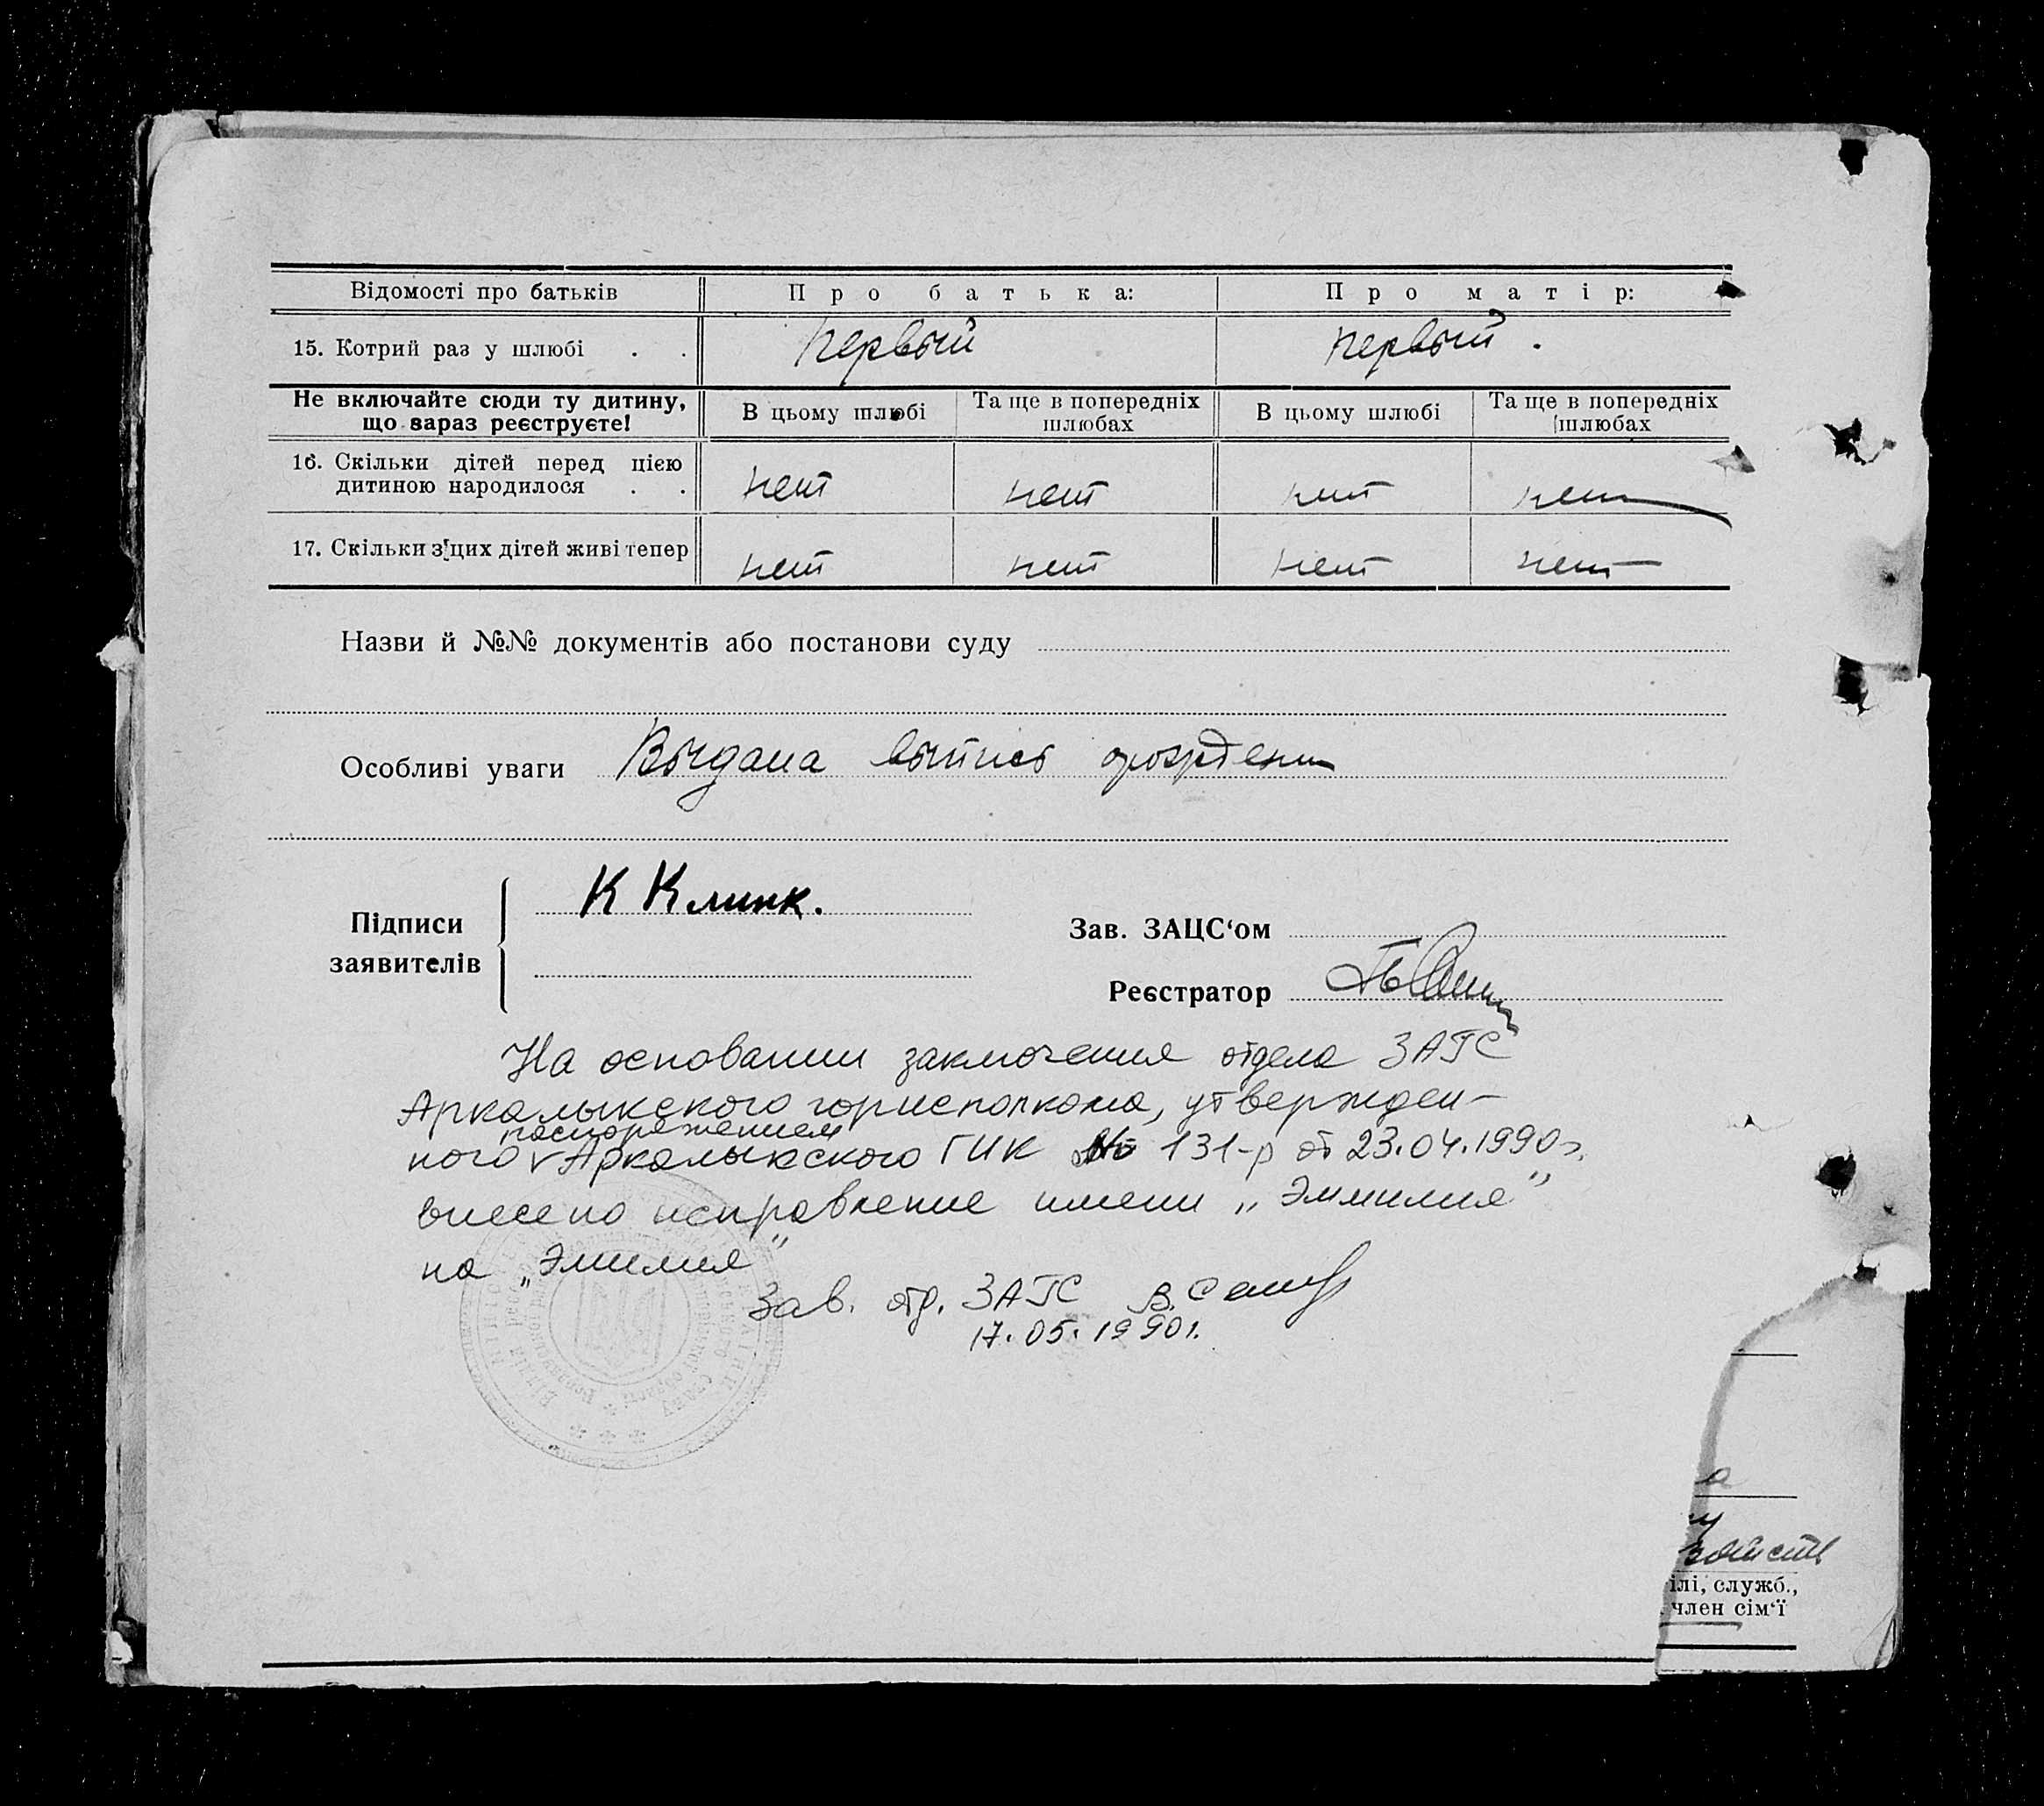 Відомості про батьків Про батька: Про матір:
15. Котрий раз у шлюбі . . первый первый .
Не включайте сюди ту дитину, що зараз реєструєте! В цьому шлюбі Та ще в попередніх шлюбах В цьому шлюбі Та ще в попередніх шлюбах
16. Скільки дітей перед цією
дитиною народилося . . нет нет нет нет
17. Скільки з цих дітей живі тепер нет нет нет нет
Назви й №№ документів або постанови суду
Особливі уваги Выдана выпись
Підписи
заявителів
К Клинк.
Зав. ЗАЦС‘ом
Реєстратор
На основании заключения отдела ЗАГС
Аркалыкского горисполкома, утвержден-
распоряжением
ного v Аркалыкского ГИК № 131-р от 23.04.1990г.
внесено исправление имени „Эммилия"
на „Эмилия"
Зав. отд. ЗАГС В.
17.05.1990г.
ілі, служб.,
член сім‘ї